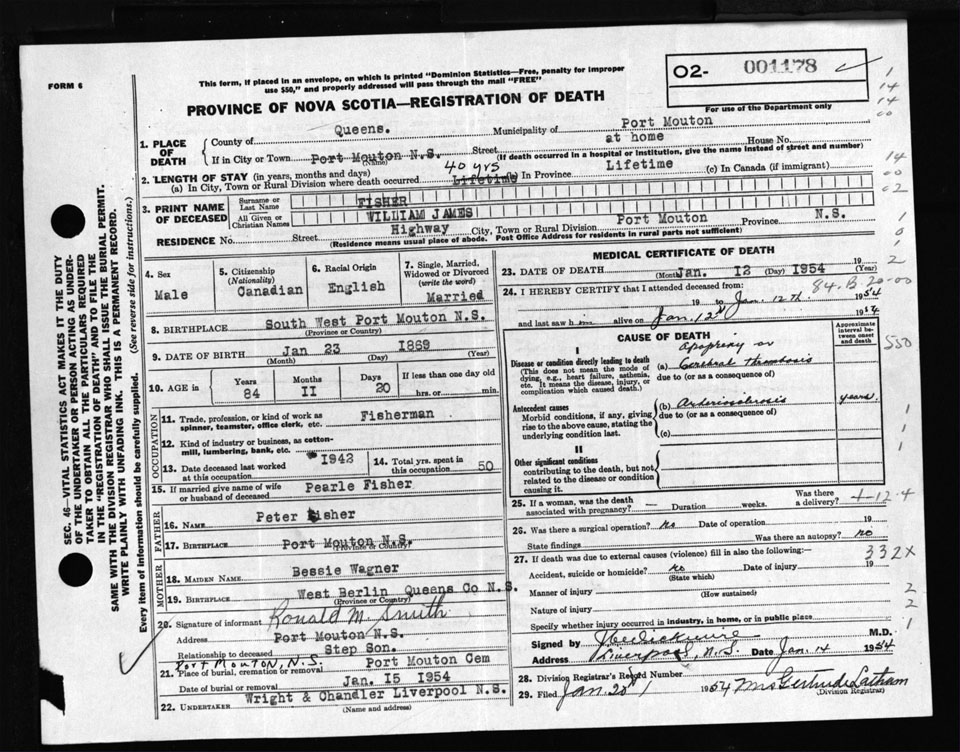 FORM 6
This form, if placed in an envelope, on which is printed "Dominion Statistics—Free, penalty for improper
use $50," and properly addressed will pass through the mail "FREE"
PROVINCE OF NOVA SCOTIA—REGISTRATION OF DEATH
O2- 001178
For use of the Department only
1. PLACE OF DEATH
County of Queens. Municipality of Port Mouton
If in City or Town Port Mouton N.S. Street at home House No.
(Name) (If death occurred in a hospital or institution, give the name instead of street and number)
2. LENGTH OF STAY (in years, months and days)
(a) In City, Town or Rural Division where death occurred Lifetime 40 yrs (b) In Province Lifetime (c) In Canada (if immigrant)
3. PRINT NAME OF DECEASED
Surname or Last Name FISHER
All Given or Christian Names WILLIAM JAMES
RESIDENCE No. Street Highway City, Town or Rural Division Port Mouton Province N.S.
(Residence means usual place of abode. Post Office Address for residents in rural parts not sufficient)
4. Sex
Male
5. Citizenship
(Nationality)
Canadian
6. Racial Origin
English
7. Single, Married, Widowed or Divorced
(write the word)
Married
8. BIRTHPLACE South West Port Mouton N.S.
(Province or Country)
9. DATE OF BIRTH Jan 23 1869
(Month) (Day) (Year)
10. AGE in Years 84 Months II Days 20 If less than one day old hrs. or min.
OCCUPATION
11. Trade, profession, or kind of work as Fisherman
spinner, teamster, office clerk, etc.
12. Kind of industry or business, as cotton-
mill, lumbering, bank, etc.
13. Date deceased last worked at this occupation 1942
14. Total yrs. spent in this occupation 50
15. If married give name of wife or husband of deceased Pearle Fisher
FATHER
16. NAME Peter Fisher
17. BIRTHPLACE Port Mouton N.S.
(Province or Country)
MOTHER
18. MAIDEN NAME Bessie Wagner
19. BIRTHPLACE West Berlin Queens Co N.S.
(Province or Country)
20. Signature of informant Ronald M. Smith
Address Port Mouton N.S.
Relationship to deceased Step Son.
PORT MOUTON, N.S.
21. Place of burial, cremation or removal Port Mouton Cem
Date of burial or removal Jan. I5 I954
22. UNDERTAKER Wright & Chandler Liverpool N.S.
(Name and address)
MEDICAL CERTIFICATE OF DEATH
23. DATE OF DEATH Jan. I2 1954 19
(Month) (Day) (Year)
24. I HEREBY CERTIFY that I attended deceased from:
84.B.20-00
19 to Jan. 12th 1954
and last saw him alive on Jan. 12 1954
CAUSE OF DEATH
Approximate interval between onset and death
I
Disease or condition directly leading to death
(This does not mean the mode of dying, e.g., heart failure, asthenia, etc. It means the disease, injury, or complication which caused death.)
Apoplexy or
(a) Cerebral thrombosis
due to (or as a consequence of)
Antecedent causes
Morbid conditions, if any, giving rise to the above cause, stating the underlying condition last.
(b) Arteriosclerosis years.
due to (or as a consequence of)
(c)
II
Other significant conditions
contributing to the death, but not related to the disease or condition causing it.
25. If a woman, was the death associated with pregnancy? — Duration weeks. Was there a delivery?
26. Was there a surgical operation? no Date of operation 19
State findings Was there an autopsy? no
27. If death was due to external causes (violence) fill in also the following:—
Accident, suicide or homicide? no Date of injury 19
(State which)
Manner of injury
(How sustained)
Nature of injury
Specify whether injury occurred in industry, in home, or in public place
Signed by M.D.
Address Liverpool, N.S. Date Jan. 14 1954
28. Division Registrar's Record Number 1
29. Filed Jan. 20 1954 Mrs Gertrude Latham
(Division Registrar)
1
14
14
00
14
00
02
1
0
1
2
550
1
1
1
4-12-4
332X
2
2
1
SEC. 46—VITAL STATISTICS ACT MAKES IT THE DUTY
OF THE UNDERTAKER OR PERSON ACTING AS UNDER-
TAKER TO OBTAIN ALL THE PARTICULARS REQUIRED
IN THE "REGISTRATION OF DEATH" AND TO FILE THE
SAME WITH THE DIVISION REGISTRAR WHO SHALL ISSUE THE BURIAL PERMIT.
WRITE PLAINLY WITH UNFADING INK. THIS IS A PERMANENT RECORD.
Every item of information should be carefully supplied. (See reverse side for instructions.)